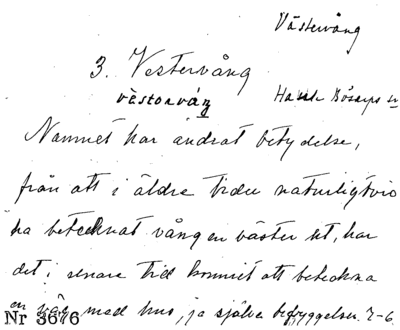 Västervång
3. Vestervång
vèstorváŋ
Hassle Bösarps sn
Namnet har ändrat betydelse,
från att i äldre tider naturligtvis
ha betecknat vången väster ut, har
det i senare tid kommit att beteckna
en väg med hus, ja själva bebyggelsen. 7-6
Nr 3676